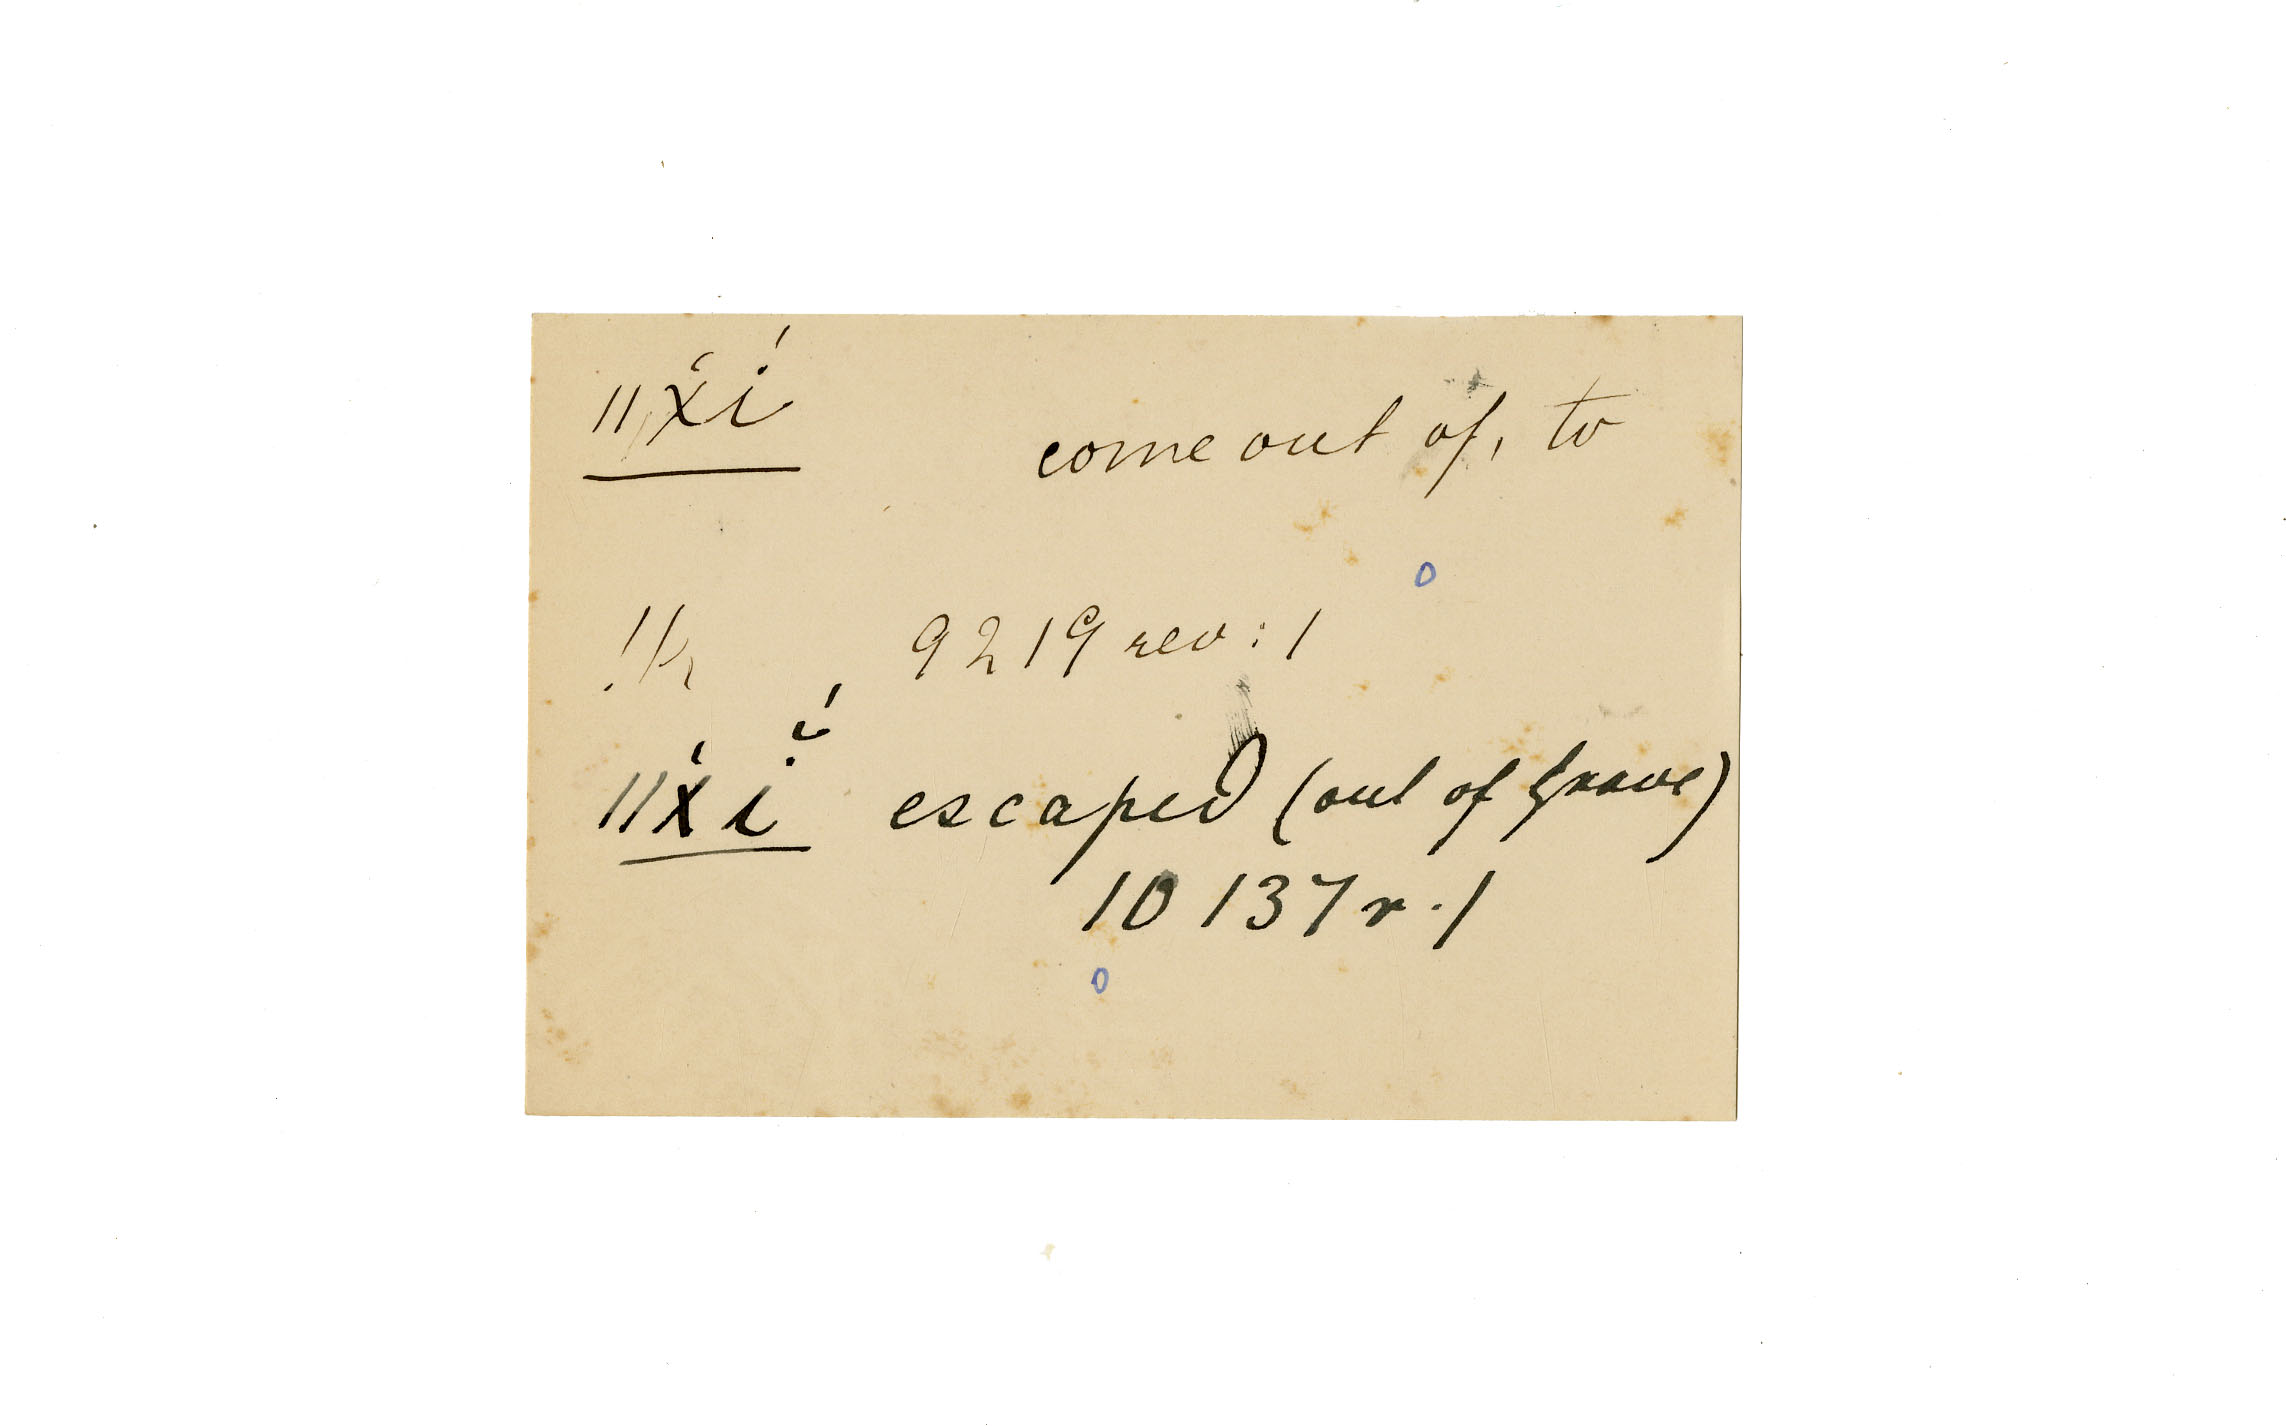 ǁx̓í
come out of, to
ǁk, 9219 rev: 1
ǁx̓i escaped (out of grave)
10137 r. 1